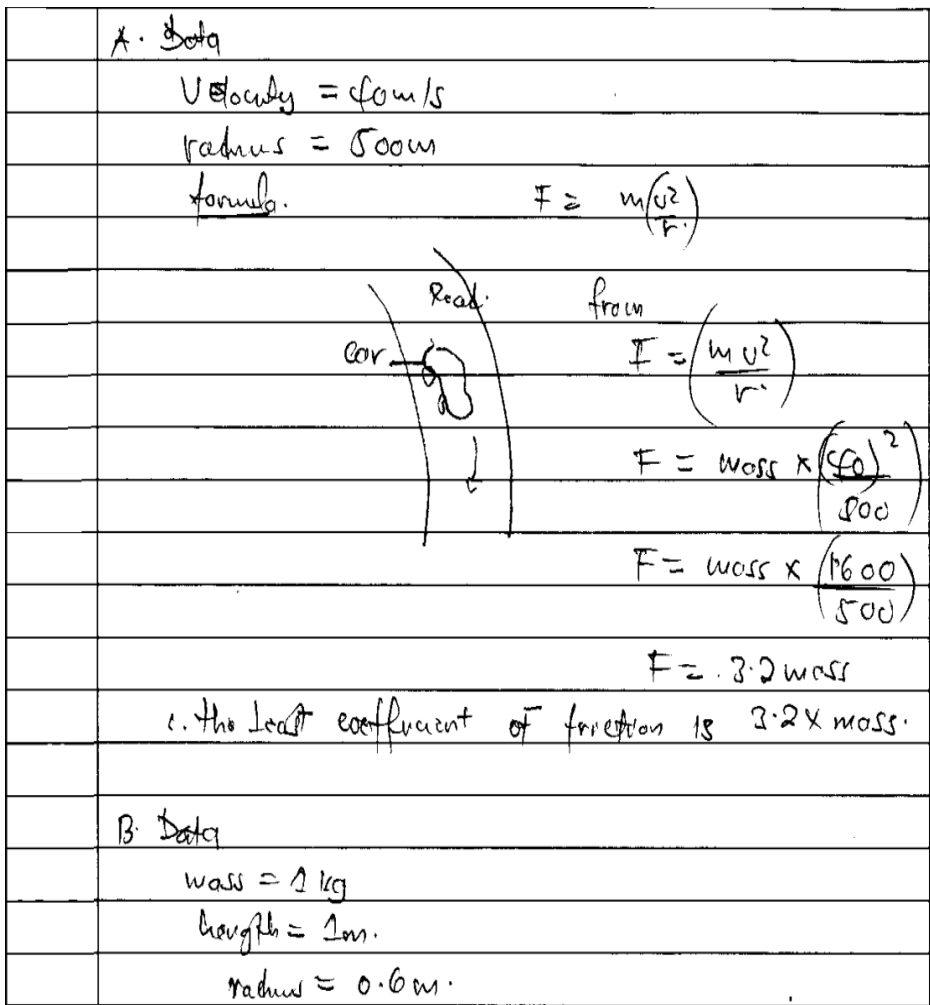 A. Data
Velocity = 40m/s
radius = 500m
formula. F = m(v²/r.)
Road. from
car F = (mv²/r.)
F = mass × ((40)²/500)
F = mass × (1600/500)
F = . 3.2 mass
∴ the least coefficient of friction is 3.2 × mass.
B. Data
mass = 1 kg
height = 1m.
radius = 0.6 m.